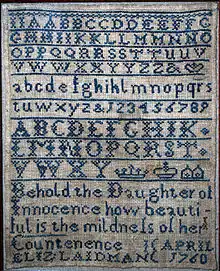 AABBCCDDEEFFG
GHHIIKKLLMMNNO
OPPQQRRSSTTUUV
VWWXXYYZZ&
abcdefghiklmnopqrs
tuvwxyz 123456789
ABCDEFGHIK
LMNOPQRST
VWXY
Behold the Daughter of
Innocence how beauti-
ful is the mildneſs of her
Countenence 11 APRIL
ELIZ: LAIDMAN 1760